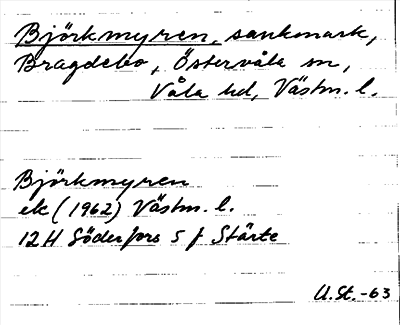 Björkmyren, sankmark,
Bragdebo, Östervåla sn,
Våla hd, Västm. l.
Björkmyren
ek (1962) Västm. l.
12H Söderfors 5 f Stärte
U.St.-63